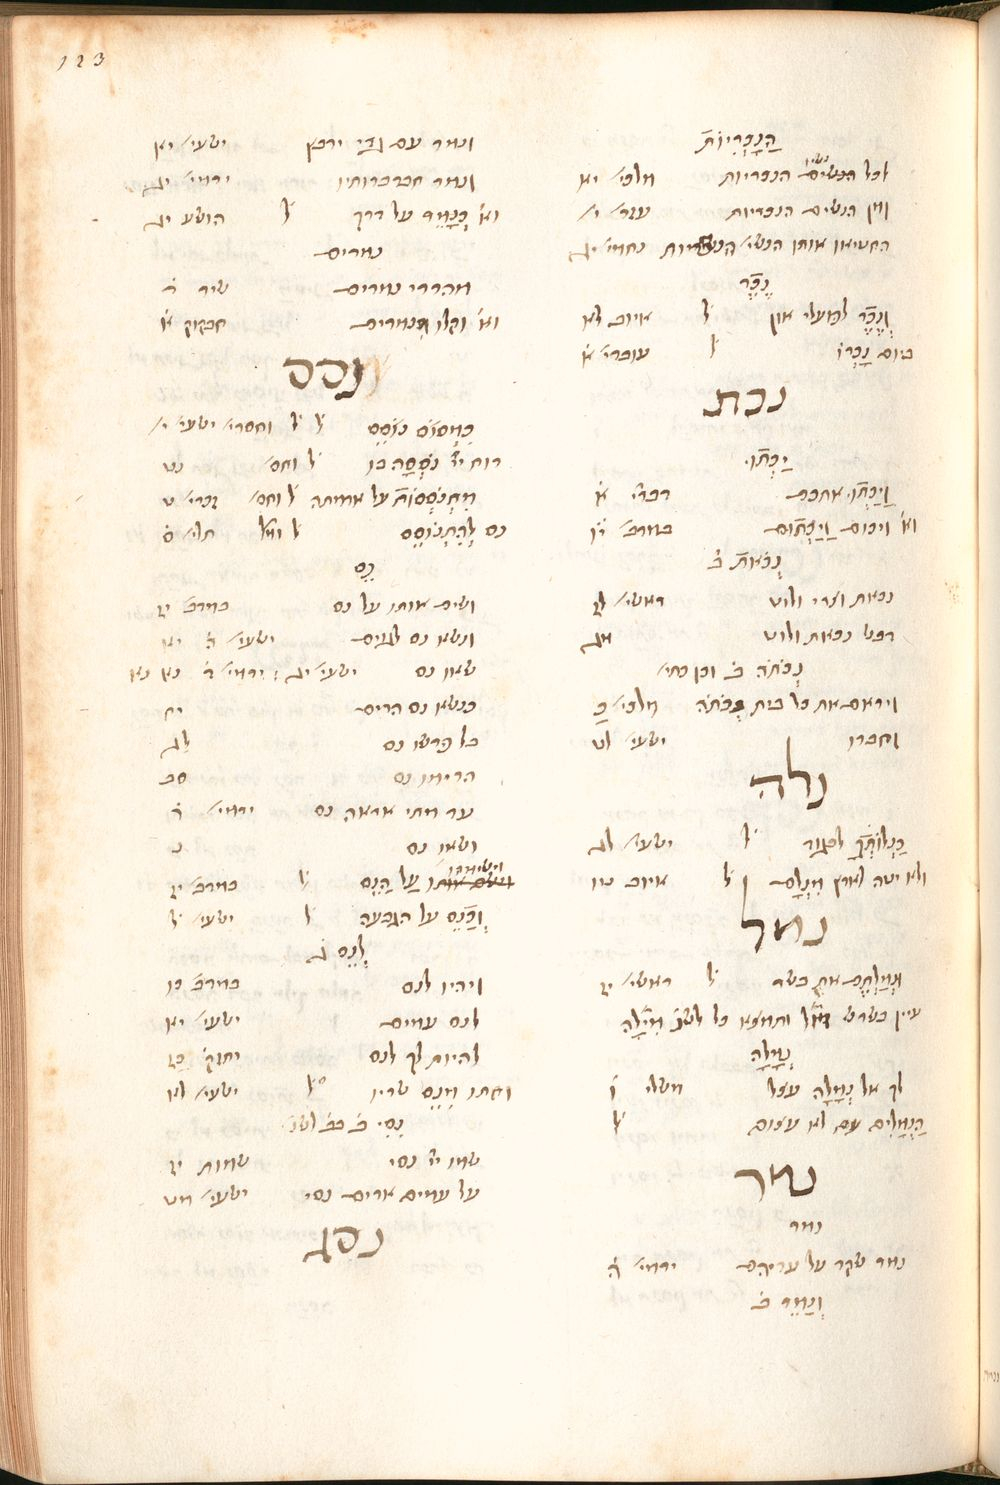 123
הַנָּכְרִיּוֹת
לכל נשיו הנכריות מלכי׳ יא
ומן הנשים הנכריות עזר׳ י׳
החטיאו אותו הנשי׳ הנכריות נחמי׳ יג
נֶכֶר
וְנֶכֶר לפועלי און ל׳ איוב לא
ביום נָכְרוֹ ל׳ עובדי׳ א
נכת
יַכְּתוּ
וַיַּכְּתוּ אתכם דברי׳ א
וא׳ ויכום וַיַּכְּתוּם במדב׳ יד
נְכֹאת ב׳
נכאת וצרי ולוט בראשי׳ לז
דבש נכאת ולוט מג
נְכֹתֹה ב׳ וכן כתי׳
ויראם את כל בית נְכֹתֹה מלכי׳ כ
וחברו ישעי׳ לט
נלה
כַּנְּלוֹתְךָ לבגוד ל׳ ישעי׳ לג
ולא יטה לארץ מִנְלָם ל׳ איוב טו
נמל
וּנְמַלְתֶּם את בשר ל׳ בראשי׳ יז
עיין בשרש מול ותמצא כל לשון מִילָה
נְמָלָה
לך אל נְמָלָה עצל משלי ו
הַנְּמָלִים עם לא עצום ל׳
נמר
נמר
נמר שקד על עריהם ירמי׳ ה
וְנָמֵר ב׳
ונמר עם גדי ירבץ ישעי׳ יא
ונמר חברברותיו ירמי׳ יג
וא׳ כְּנָמֵר על דרך ל׳ הושע יג
נמרים
מהררי נמרים שיר ד
וא׳ וקלו מִנְּמֵרִים חבקוק א
נסס
כִּמְסוֹס נוֹסֵס ל׳ ל׳ וחסרי׳ ישעי׳ י׳
רוח יי׳ נֹסְסָה בו ל׳ וחס׳ נט
מִתְנוֹסְסוֹת על אדמתה ל׳ וחס׳ זכרי׳ ט
נס לְהִתְנוֹסֵס ל׳ ומל׳ תלי׳ ס
נֵס
ושים אותו על נס במדב׳ יז
ונשא נס לגוים ישעי׳ ה יא
שאו נס ישעי׳ יג ירמי׳ ד נא נא
כנשוא נס הרים יח
בל פרשו נס לג
הרימו נס סב
עד מתי אראה נס ירמי׳ ד
ושאו נס נ
וישימהו עַל הַנֵּס ל׳ במדב׳ יז
וְכַנֵּס על הגבעה ל׳ ישעי׳ ל׳
לְנֵס ג׳
ויהיו לנס במדב׳ כו
לנס עמים ישעי׳ יא
להיות לך לנס יחזק׳ כז
וחתו מִנֵּס שריו ל׳ ישעי׳ לא
נִסִּי ב׳ בב׳ לשנ׳
שמו יי׳ נסי שמות יז
על עמים ארים נסי ישעי׳ מט
נסג